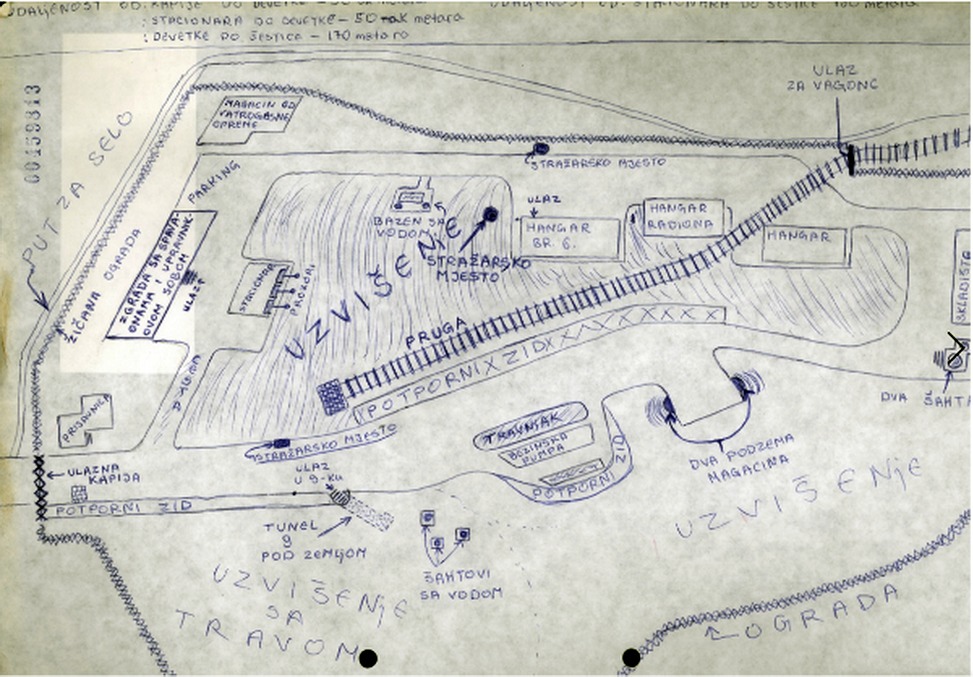 UDALJENOST OD: KAPIJE DO DEVETKE –
: STACIONARA DO DEVETKE – 50 metara
: DEVETKE DO ŠESTICE – 170 metara
UDALJENOST OD: STACIONARA DO ŠESTICE 100 metara
00459813
PUT ZA SELO
ŽIČANA OGRADA
MAGACIN OD
VATROGASNE
OPREME
PARKING
ULAZ
ZA VAGONE
STRAŽARSKO MJESTO
ZGRADA SA SPAVA-
ONAMA I UPRAVNIK-
OVOM SOBOM
ULAZ
BAZEN SA
VODOM
STRAŽARSKO
MJESTO
UZVIŠENJE
ULAZ
HANGAR
BR. 6.
HANGAR
RADIONA
HANGAR
SKLADIŠTE
STACIONAR
PROZORI
PRUGA
POTPORNI ZID
PRIJAVNICA
STRAŽARSKO MJESTO
ULAZNA
KAPIJA
POTPORNI ZID
ULAZ
U 9-KU
TUNEL
9
POD ZEMLJOM
TRAVNJAK
BENZINSKA
PUMPA
POTPORNI ZID
DVA PODZEMA
MAGACINA
DVA ŠAHTA
ŠAHTOVI
SA VODOM
UZVIŠENJE
UZVIŠENJE
SA
TRAVOM
OGRADA